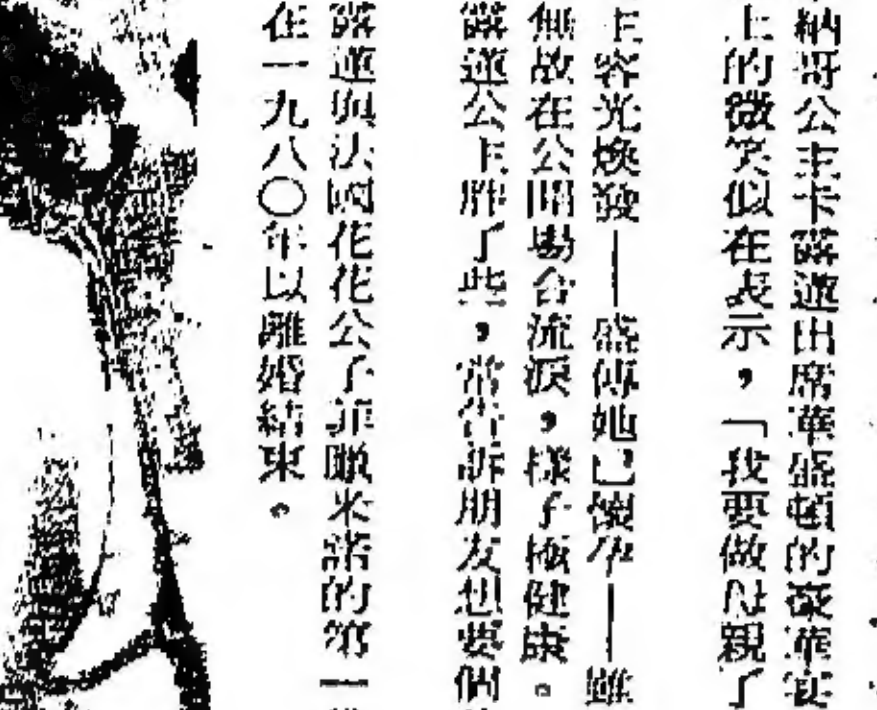 納哥公主卡露蓮出席華盛頓的豪華宴
上的微笑似在表示，「我要做母親了
主容光煥發——盛傳她已懷孕——雖
無故在公開場合流淚，樣子極健康。
露蓮公主胖了些，常告訴朋友想要個
露蓮與法國花花公子菲臘米諾的第一
在一九八〇年以離婚結束。